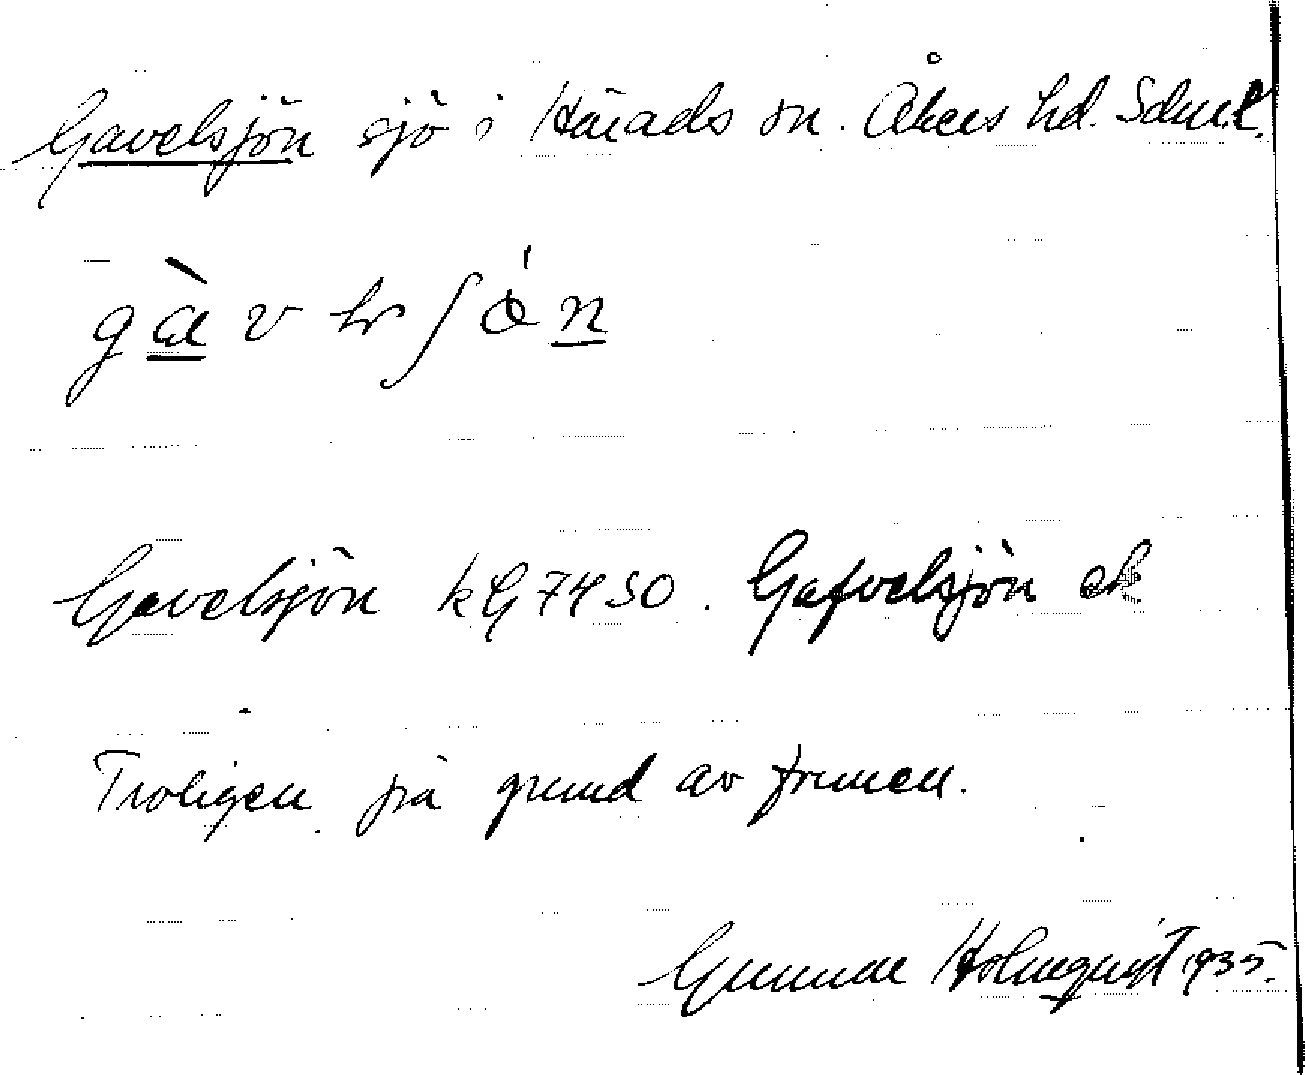 Gavelsjön sjö i Härads sn. Åkers hd. Sdml.
Gavelsjön kG 7450. Gafvelsjön ek
Troligen på grund av formen.
Gunnar Holmqvist 1935.